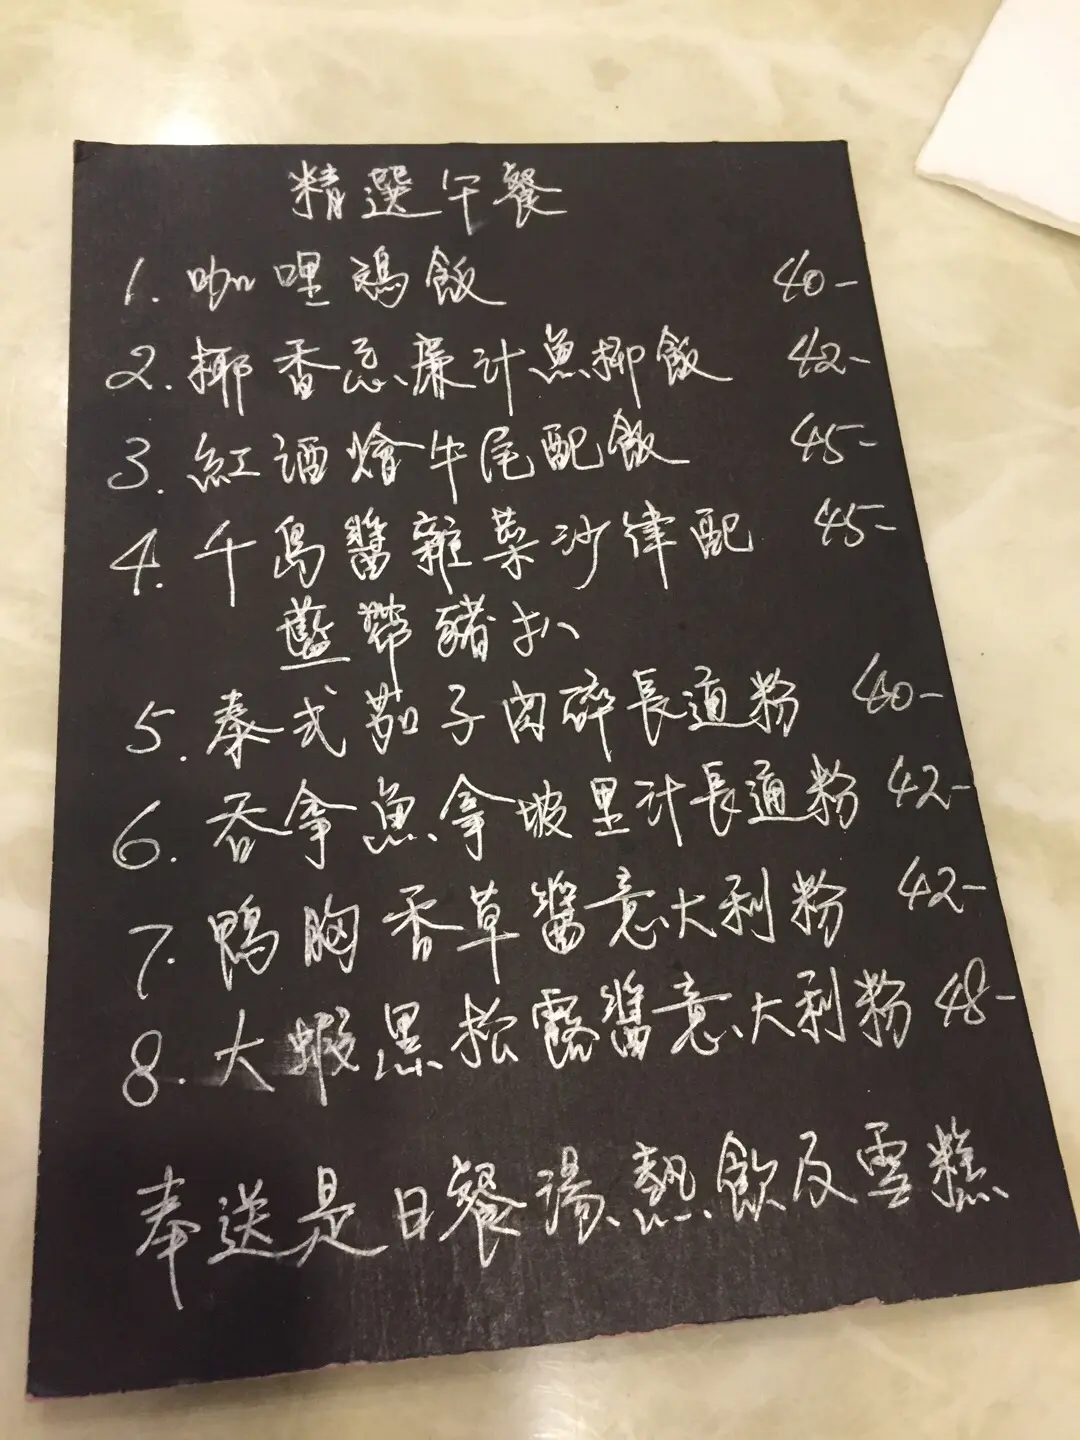 精選午餐
1. 咖哩鷄飯 40-
2. 椰香忌廉汁魚柳飯 42-
3. 紅酒燴牛尾配飯 45-
4. 千島醬雜菜沙律配 45-
藍帶豬扒
5. 泰式茄子肉碎長通粉 40-
6. 吞拿魚拿坡里汁長通粉 42-
7. 鴨胸香草醬意大利粉 42-
8. 大蝦黑松露醬意大利粉 48-
奉送是日餐湯熱飲及雪糕